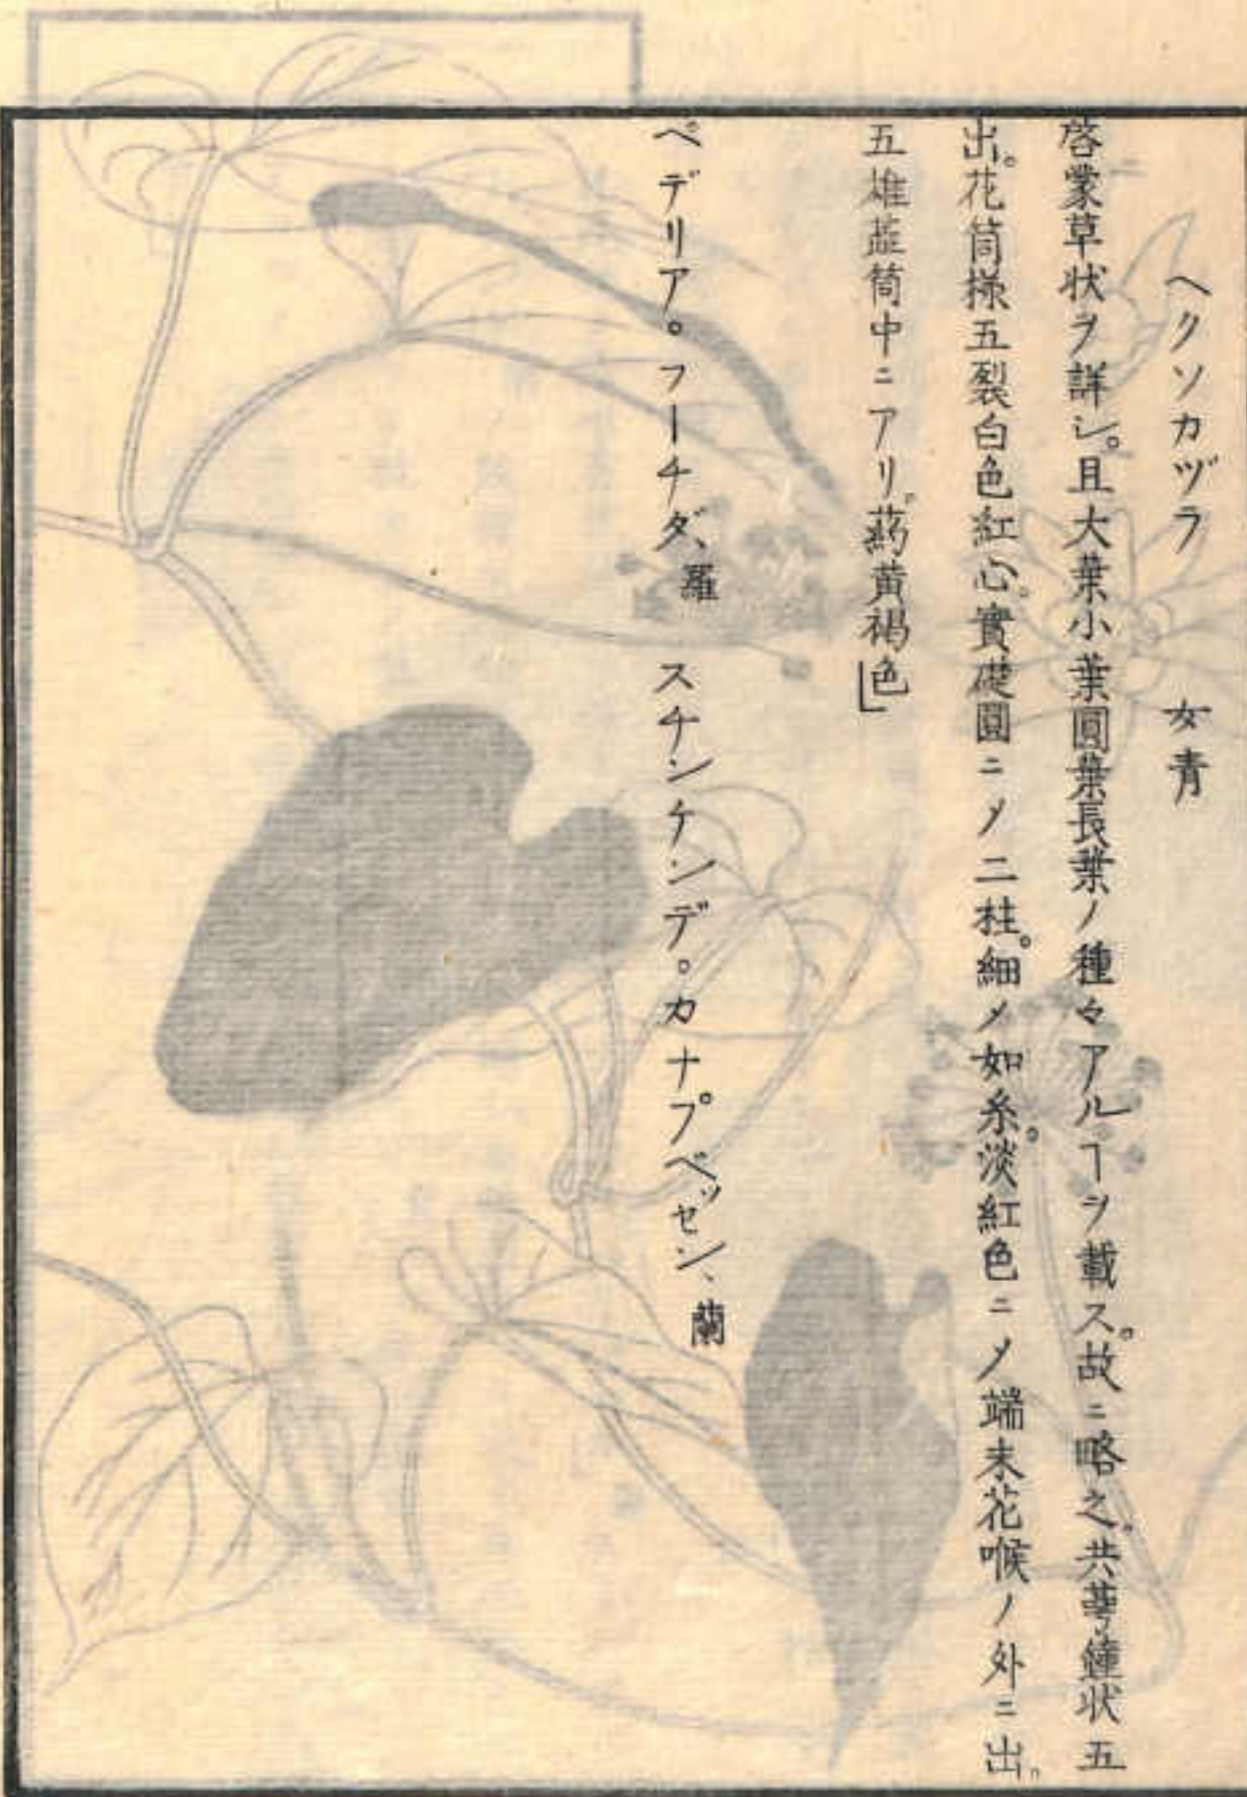 ヘクソカヅラ　女青
啓蒙草状ヲ詳シ。且大葉小葉圓葉長葉ノ種々アルヿヲ載ス。故ニ略之。共萼鐘状五
出。花筒様五裂白色紅心。實礎圓ニメ二柱。細メ如糸。淡紅色ニメ端末花喉ノ外ニ出。
五雄蕋筒中ニアリ。葯黄褐色」
ペデリア。フーチダ、羅　スチンケンデ。カナプベッセン、蘭